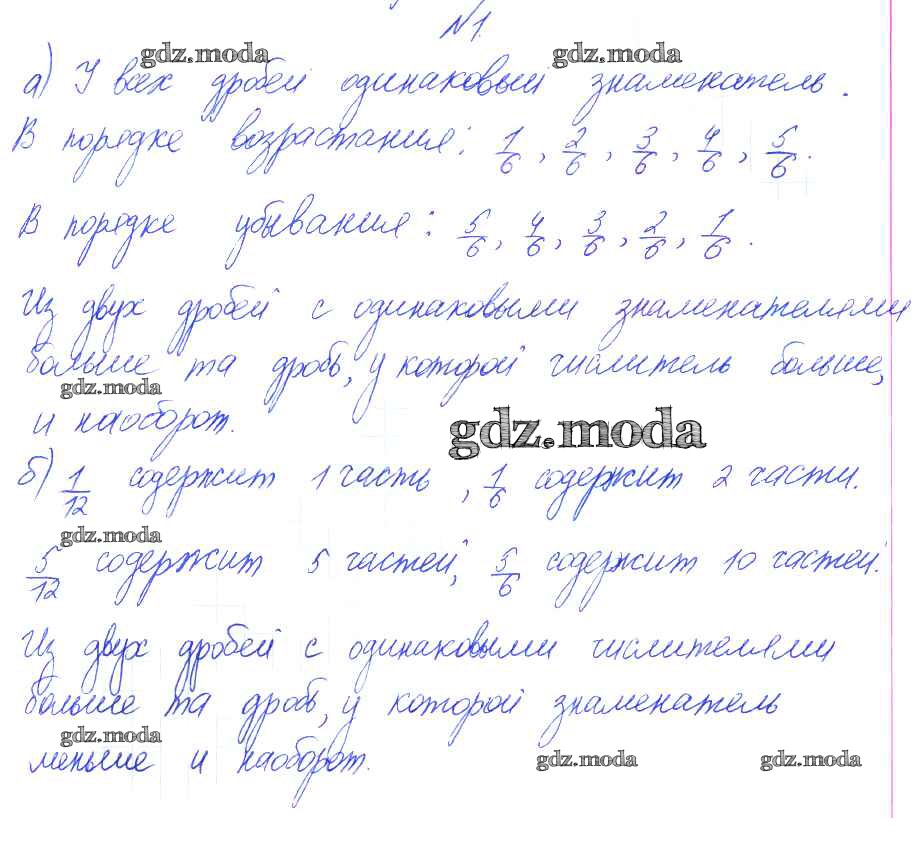 №1.
gdz.moda gdz.moda
а) У всех дробей одинаковый знаменатель.
В порядке возрастания: 1/6, 2/6, 3/6, 4/6, 5/6.
В порядке убывания: 5/6, 4/6, 3/6, 2/6, 1/6.
Из двух дробей с одинаковыми знаменателями
больше та дробь, у которой числитель больше,
gdz.moda
и наоборот.
gdz.moda
б) 1/12 содержит 1 часть, 1/6 содержит 2 части.
gdz.moda
5/12 содержит 5 частей, 5/6 содержит 10 частей.
Из двух дробей с одинаковыми числителями
больше та дробь, у которой знаменатель
gdz.moda
меньше и наоборот.
gdz.moda gdz.moda